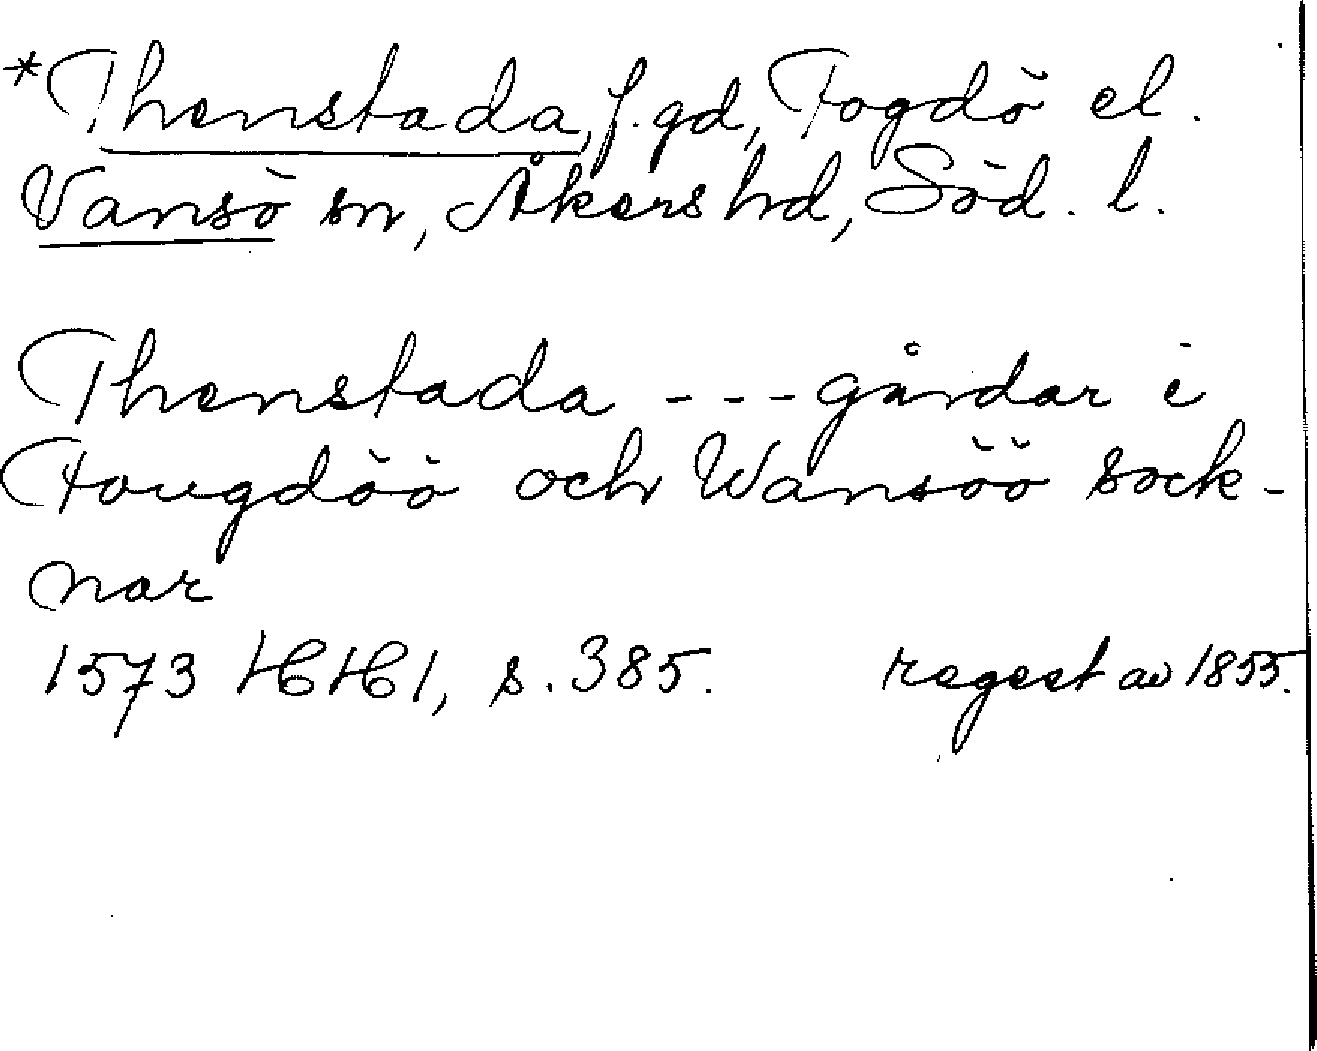 *Thenstada, f.gd, Fogdö el.
Vansö sn, Åkers hd, Söd. l.
Thenstada --- gårdar i
Fougdöö och Wansöö sock-
nar
1573 HH 1, s. 385. regest av 1855.